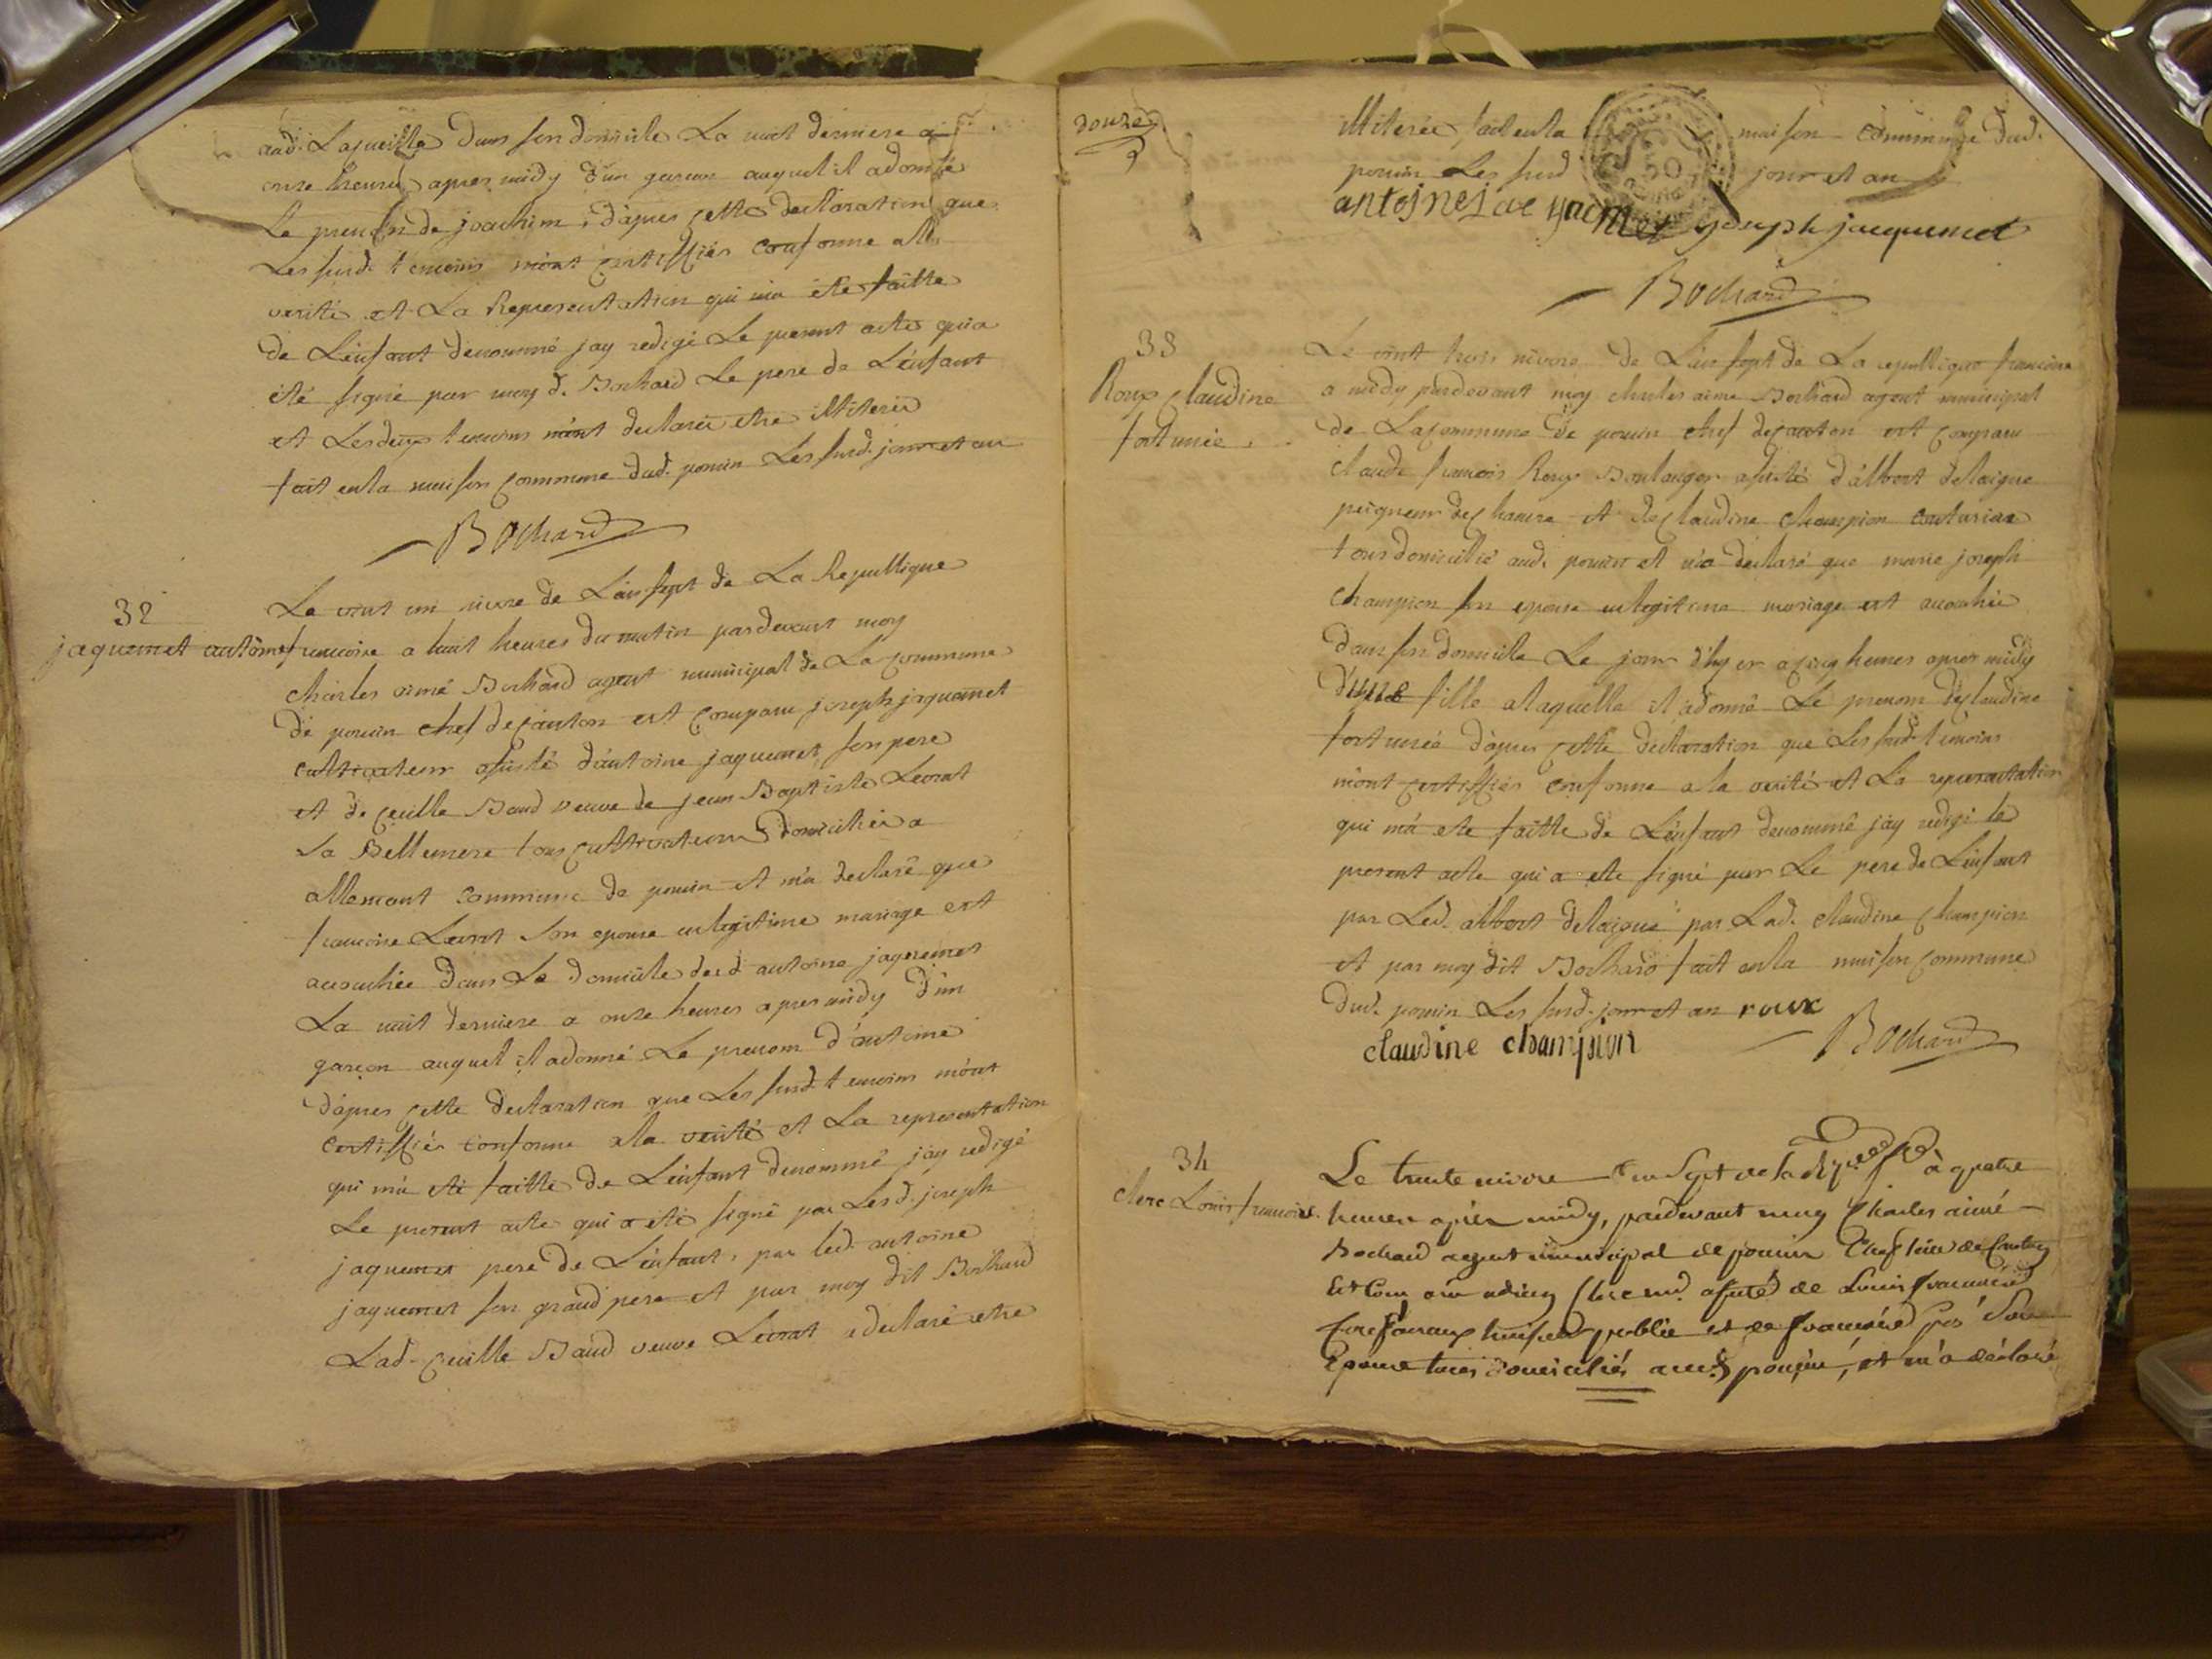 aud. Lajueille dans son domicile La nuit derniere a
onze heures apres midy d'un garcon auquel il a donné
Le prenom de joachim, d'apres cette declaration que
Les susd. temoins m'ont certiffiés conforme a la
verité et La Representation qui m'a ete faitte
de L'enfant denommé jay redigé Le present acte qui a
été signé par moy d. Bochard Le pere de L'enfant
et Les deux temoins m'ont declarés etre illiterés
fait en la maison commune dud. poncin Les susd. jour et an
Bochard
32
jaquemet antoine
Le vint un nivose de L'an sept de La Republique
francoise a huit heures du matin pardevant moy
charles aimé Bochard agent municipal de La commune
de poncin chef de canton est comparu joseph jaquemet
cultivateur assisté d'antoine jaquemet son pere
et de cecille Baud veuve de jean Baptiste Levrat
sa Bellemere tous cultivateurs domiciliés a
allement commune de poncin et m'a declaré que
francoise Levrat son epouse en legitime mariage est
accouchée dans Le domicile dud. antoine jaquemet
La nuit derniere a onze heures apres midy d'un
garçon auquel il a donné Le prenom d'antoine
d'apres cette declaration que Les susd. temoins m'ont
certiffiés conforme a la verité et La representation
qui m'a eté faitte de L'enfant denommé jay redigé
Le present acte qui a été signé par Lesd. joseph
jaquemet pere de L'enfant, par led. antoine
jaquemet son grand pere et par moy dit Bochard
Lad. cecille Baud veuve Levrat a declaré etre
douze
illiterée, fait en la maison commune dud.
poncin Les susd. jour et an
antoine jacquemet joseph jacquemet
Bochard
33
Roux Claudine
fortunée.
Le vint trois nivose de L'an sept de La republique francoise
a midy pardevant moy charles aimé Bochard agent municipal
de La commune de poncin chef de canton est comparu
claude francois Roux Boulanger assisté d'albert delaigue
peigneur de chanvre et de claudine champion couturiere
tous domiciliés aud. poncin et m'a declaré que marie joseph
champion son epouse en legitime mariage est accouchée
dans son domicile Le jour d'hyer a cinq heures apres midy
d'une fille a laquelle il a donné Le prenom de claudine
fortunée d'apres cette declaration que Les susd. temoins
m'ont certiffiés conforme a la verité et La representation
qui m'a ete faitte de L'enfant denommé j'ay redigé le
present acte qui a ete signé par Le pere de L'enfant
par Led. albert delaigue par Lad. claudine champion
et par moy dit Bochard fait en la maison commune
dud. poncin Les susd. jour et an roux
claudine champion Bochard
34
clerc Louis francois.
Le trente nivose an Sept de la Rep. à quatre
heures après midy, pardevant moy Charles aimé
Bochard agent municipal de poncin Chef lieu de Canton
Est Comparu Clerc assisté de Louis francois
publie et de
Epouse tous domiciliés aud. poncin, et m'a déclaré